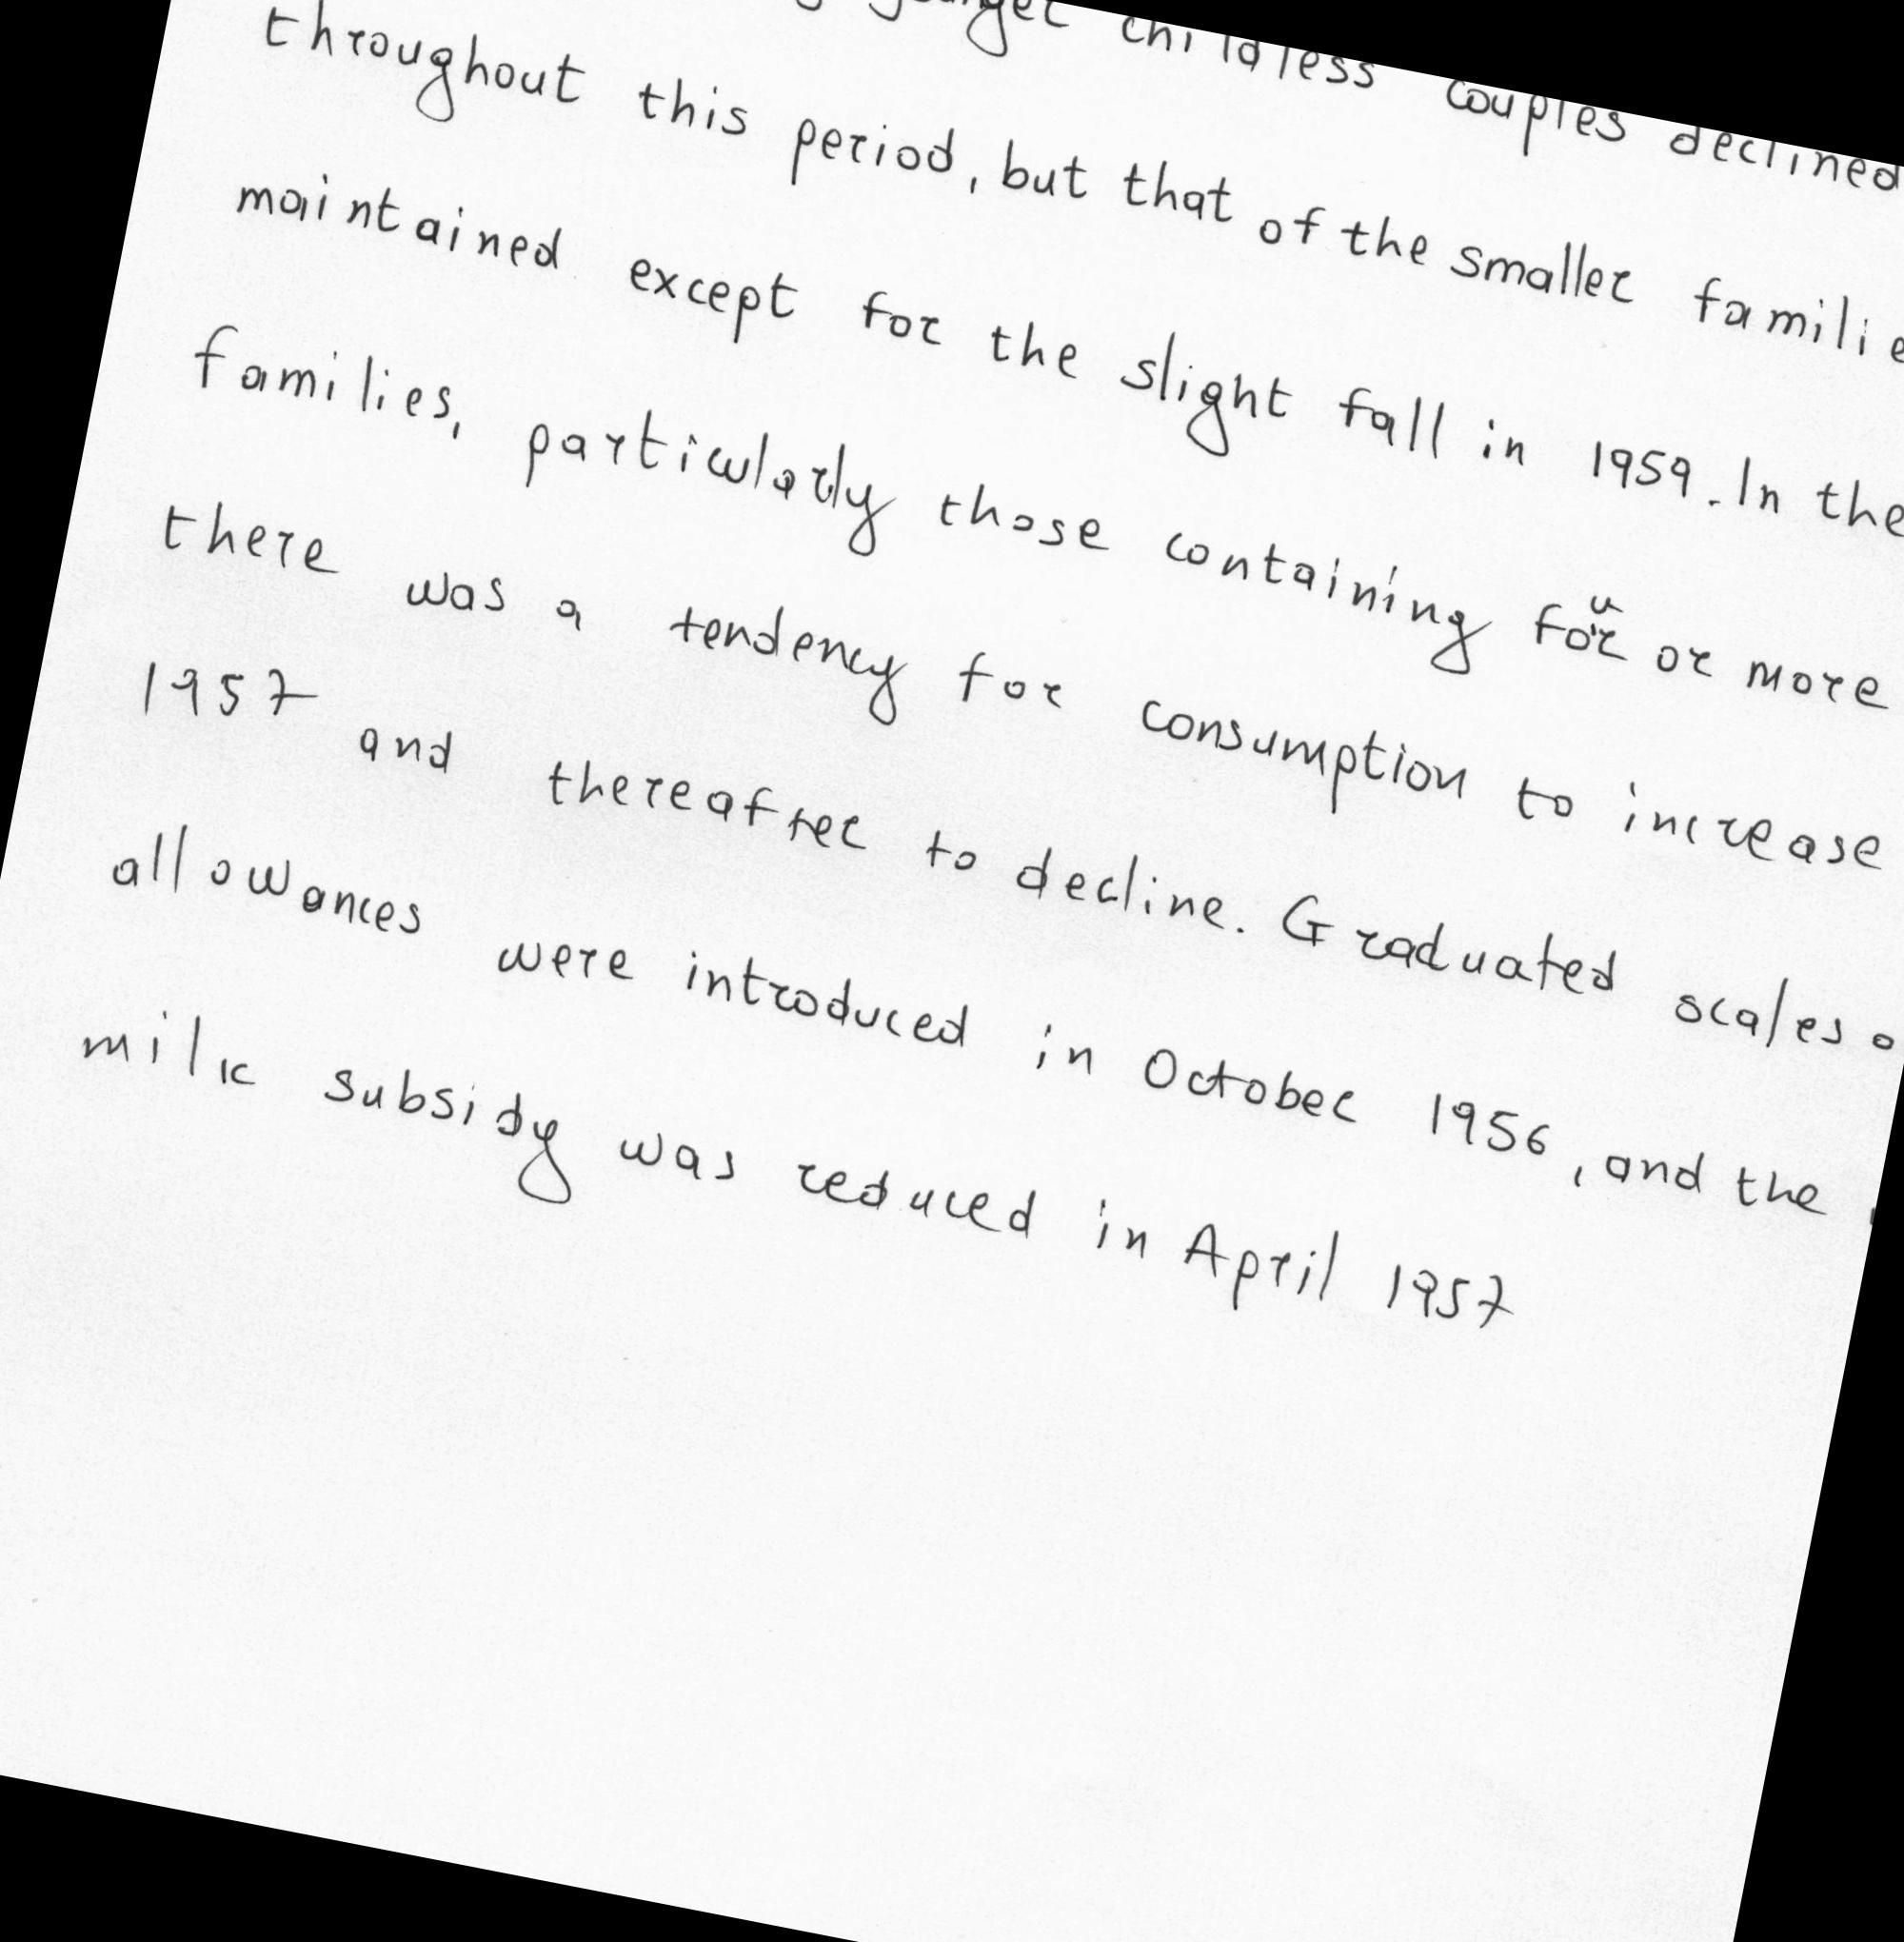 younger childless couples declined
throughout this period, but that of the smaller
maintained except for the slight fall in 1959. In the
families, particularly those containing four or more
there was a tendency for consumption to increase
1957 and thereafter to decline. Graduated scales
allowances were introduced in October 1956, and the
milk subsidy was reduced in April 1957